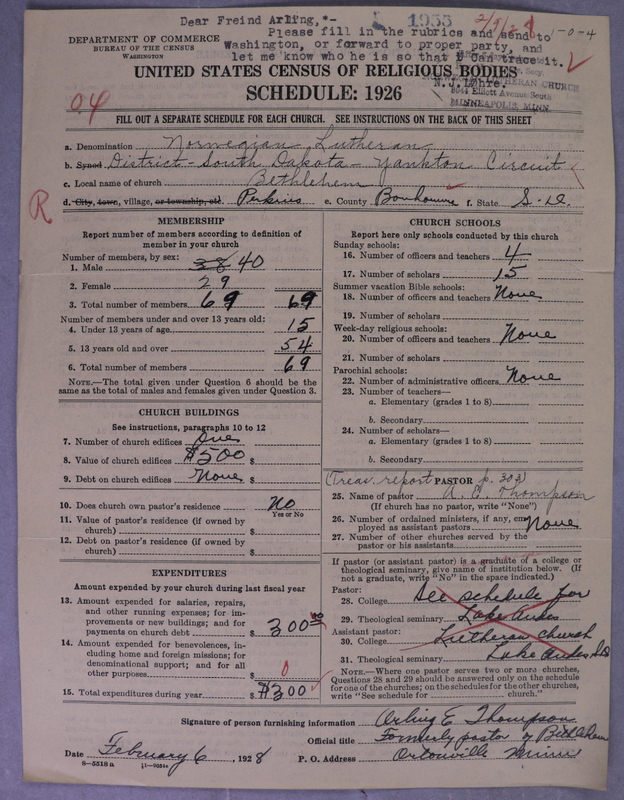 Dear Freind Arling,*-
1955
1-0-4
Please fill in the rubrics and send to
Washington, or forward to proper party, and
let me know who he is so that I can trace it.
N.J.Lohre.
LUTHERAN CHURCH
Elliott Avenue South
MINNEAPOLIS, MINN.
DEPARTMENT OF COMMERCE
BUREAU OF THE CENSUS
WASHINGTON
UNITED STATES CENSUS OF RELIGIOUS BODIES
SCHEDULE: 1926
04
FILL OUT A SEPARATE SCHEDULE FOR EACH CHURCH. SEE INSTRUCTIONS ON THE BACK OF THIS SHEET
a. Denomination Norwegian Lutheran
b. Synod District - South Dakota - Yankton Circuit
c. Local name of church Bethlehem
R
d. City, town, village, or township, etc. Perkins e. County Bonhomme f. State S. D.
MEMBERSHIP
Report number of members according to definition of
member in your church
Number of members, by sex:
1. Male 38 40
2. Female 29
3. Total number of members 69 69
Number of members under and over 13 years old:
4. Under 13 years of age 15
5. 13 years old and over 54
6. Total number of members 69
NOTE.—The total given under Question 6 should be the
same as the total of males and females given under Question 3.
CHURCH BUILDINGS
See instructions, paragraphs 10 to 12
7. Number of church edifices One
8. Value of church edifices $500 $
9. Debt on church edifices None $
10. Does church own pastor's residence No
Yes or No
11. Value of pastor's residence (if owned by
church) $
12. Debt on pastor's residence (if owned by
church) $
EXPENDITURES
Amount expended by your church during last fiscal year
13. Amount expended for salaries, repairs,
and other running expenses; for im-
provements or new buildings; and for
payments on church debt $ 300 00
14. Amount expended for benevolences, in-
cluding home and foreign missions; for
denominational support; and for all
other purposes $ 0
15. Total expenditures during year $300
CHURCH SCHOOLS
Report here only schools conducted by this church
Sunday schools:
16. Number of officers and teachers 4
17. Number of scholars 15
Summer vacation Bible schools:
18. Number of officers and teachers None
19. Number of scholars
Week-day religious schools:
20. Number of officers and teachers None
21. Number of scholars
Parochial schools:
22. Number of administrative officers None
23. Number of teachers—
a. Elementary (grades 1 to 8)
b. Secondary
24. Number of scholars—
a. Elementary (grades 1 to 8)
b. Secondary
(Treas. report PASTOR p. 303)
25. Name of pastor A. E. Thompson
(If church has no pastor, write "None")
26. Number of ordained ministers, if any, em-
ployed as assistant pastors None
27. Number of other churches served by the
pastor or his assistants
If pastor (or assistant pastor) is a graduate of a college or
theological seminary, give name of institution below. (If
not a graduate, write "No" in the space indicated.)
Pastor:
28. College See schedule for
29. Theological seminary Lake Andes
Assistant pastor:
30. College Lutheran church
31. Theological seminary Lake Andes SD
NOTE.—Where one pastor serves two or more churches,
Questions 28 and 29 should be answered only on the schedule
for one of the churches; on the schedules for the other churches,
write "See schedule for church."
Signature of person furnishing information Arling E Thompson
Official title Formerly pastor of Bethlehem
Date February 6, 1928 P. O. Address Ortonville Minn
8-5518a 11-9654a